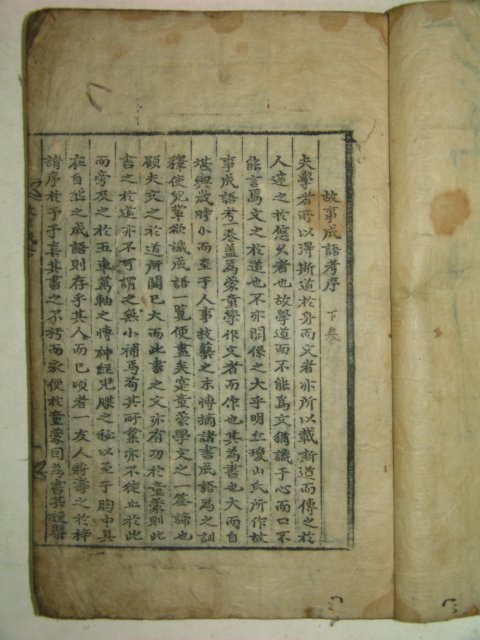 故事成語考序 下卷
夫學者所以得斯道於身而文者亦所以載斯道而傳之於
人遠之於悠久者也故學道而不能爲文猶識于心而口不
能言爲文之於道也不亦關係之大乎明丘瓊山氏所作故
事成語考一卷盖爲蒙童學作文者而作也其爲書也大而自
堪輿歲時小而至于人事技藝之末博摘諸書成語爲之訓
釋使兒輩欲識成語一覽便盡矣寔童蒙學文之一筌蹄也
顧夫文之於道所關已大而此書之文亦有功於童蒙則此
書之於道亦不可謂之無小補焉有其所業亦不徒止於此
而旁及之於五車萬軸之博神經児牒之秘以至于胸中具
在自然之成語則存乎其人而已頃者一友人將壽之於梓
請序於予予喜其書之不朽而永便於童蒙因爲書其梗槩